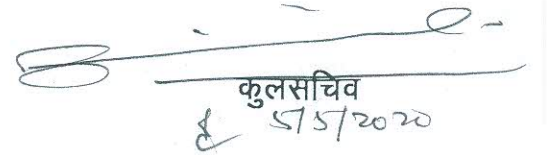 कुलसचिव
5/5/2020